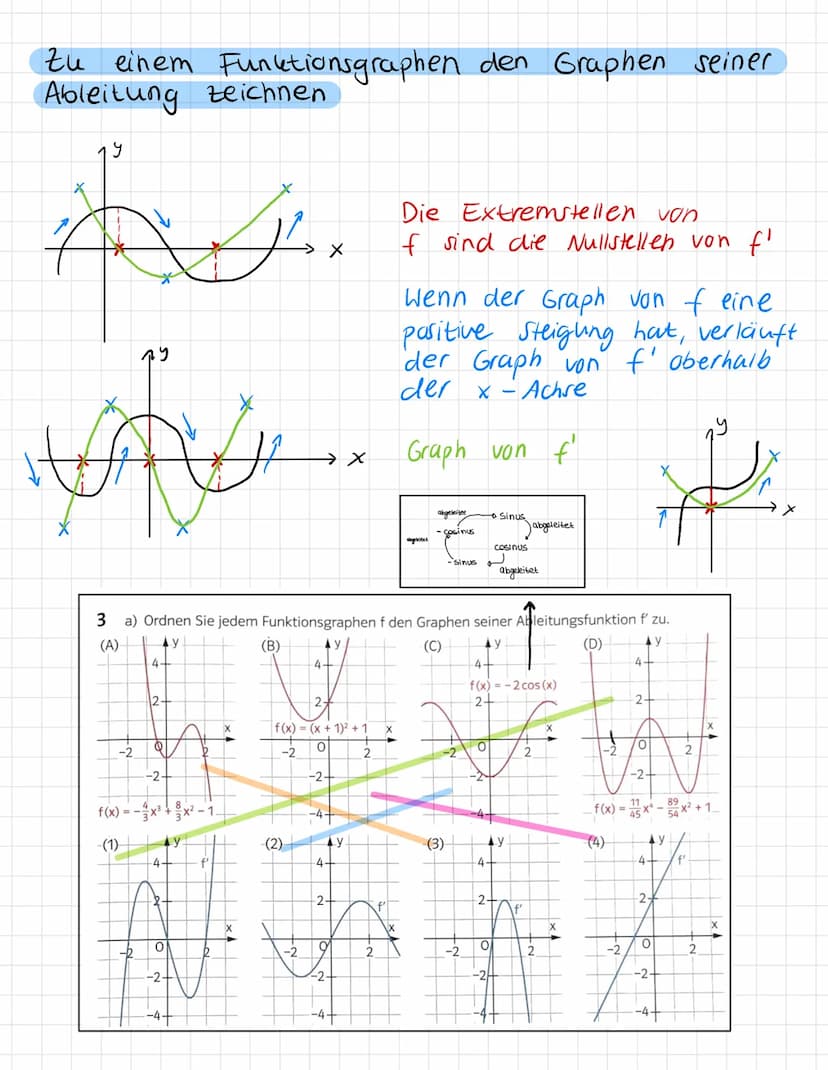 Zu einem Funktionsgraphen den Graphen seiner
Ableitung zeichnen
y
x
Die Extremstellen von
f sind die Nullstellen von f'
Wenn der Graph von f eine
positive Steigung hat, verläuft
der Graph von f' oberhalb
der x-Achse
y
x
Graph von f'
y
x
abgeleitet
Sinus
abgeleitet
-cosinus
abgeleitet
cosinus
-sinus
abgeleitet
3 a) Ordnen Sie jedem Funktionsgraphen f den Graphen seiner Ableitungsfunktion f' zu.
(A) y (B) y (C) y (D) y
4 4 4 4
f(x) = -2cos(x)
2 2 2 2
x f(x) = (x + 1)² + 1 x x x
-2 0 2 -2 0 2 -2 0 2 -2 0 2
-2 -2 -2 -2
f(x) = -4/3x³ + 8/3x² - 1 -4 -4 f(x) = 11/45x⁴ - 89/54x² + 1
(1) y (2) y (3) y (4) y
4 f' 4 4 4 f'
2 2 f' 2 f' 2
x x x x
-2 0 2 -2 0 2 -2 0 2 -2 0 2
-2 -2 -2 -2
-4 -4 -4 -4